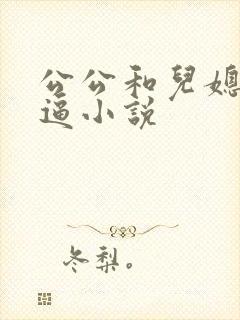 公公和兒媳
逼小說
冬梨。